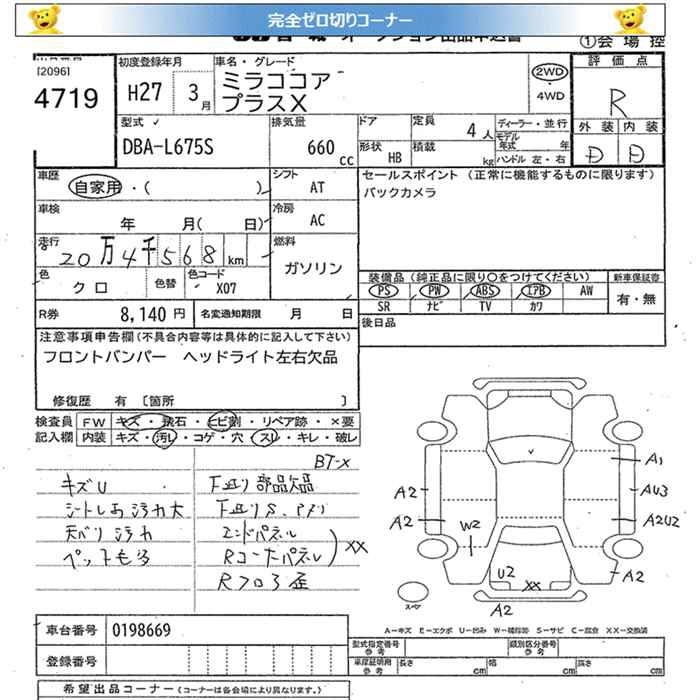 完全ゼロ切りコーナー
オークション出品申込書
①会場控
[2096]
4719
初度登録年月
H27 3月
車名・グレード
ミラココア
プラスX
2WD
・4WD
評価点
R
外装 内装
D D
型式
DBA-L675S
排気量
660 cc
ドア
形状 HB
定員 4人
積載 kg
ディーラー・並行
モデル年式 年
ハンドル 左・右
車歴
自家用・( )
シフト AT
車検
年 月( 日)
冷房 AC
走行
20万4千568km
燃料
ガソリン
色
クロ
色替
色コード
X07
セールスポイント (正常に機能するものに限ります)
バックカメラ
装備品(純正品に限り〇をつけてください)
新車保証書
PS PW ABS エアB AW
SR ナビ TV カワ
有・無
R券 8,140円
名変通知期限 月 日
後日品
注意事項申告欄(不具合内容等は具体的に記入して下さい)
フロントバンパー ヘッドライト左右欠品
修復歴 有 〔箇所 〕
検査員記入欄
FW キズ・飛石・ヒビ割・リペア跡・×要
内装 キズ・汚レ・コゲ・穴・スレ・キレ・破レ
BT-X
キズU
シートしみ汚れ大
天バリ汚れ
ペット毛多
下廻り部品欠品
下廻りS、
エンドパネル
Rコーナーパネル
XX
Rフロア歪
A1
A2
AU3
A2
A2U2
W2
A2
U2
XX
A2
スペア
A−キズ E−エクボ U−凹み W−補修跡 S−サビ C−腐食 XX−交換済
車台番号 0198669
登録番号
型式指定番号 参考
類別区分番号 参考
車庫証明用 参考
長さ cm
幅 cm
高さ cm
希望出品コーナー(コーナーは各会場により異なります。)